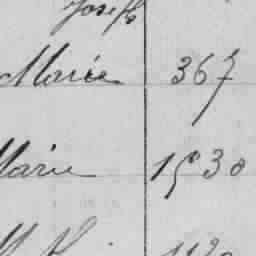 Joseph
Marie 367
Marie 1530